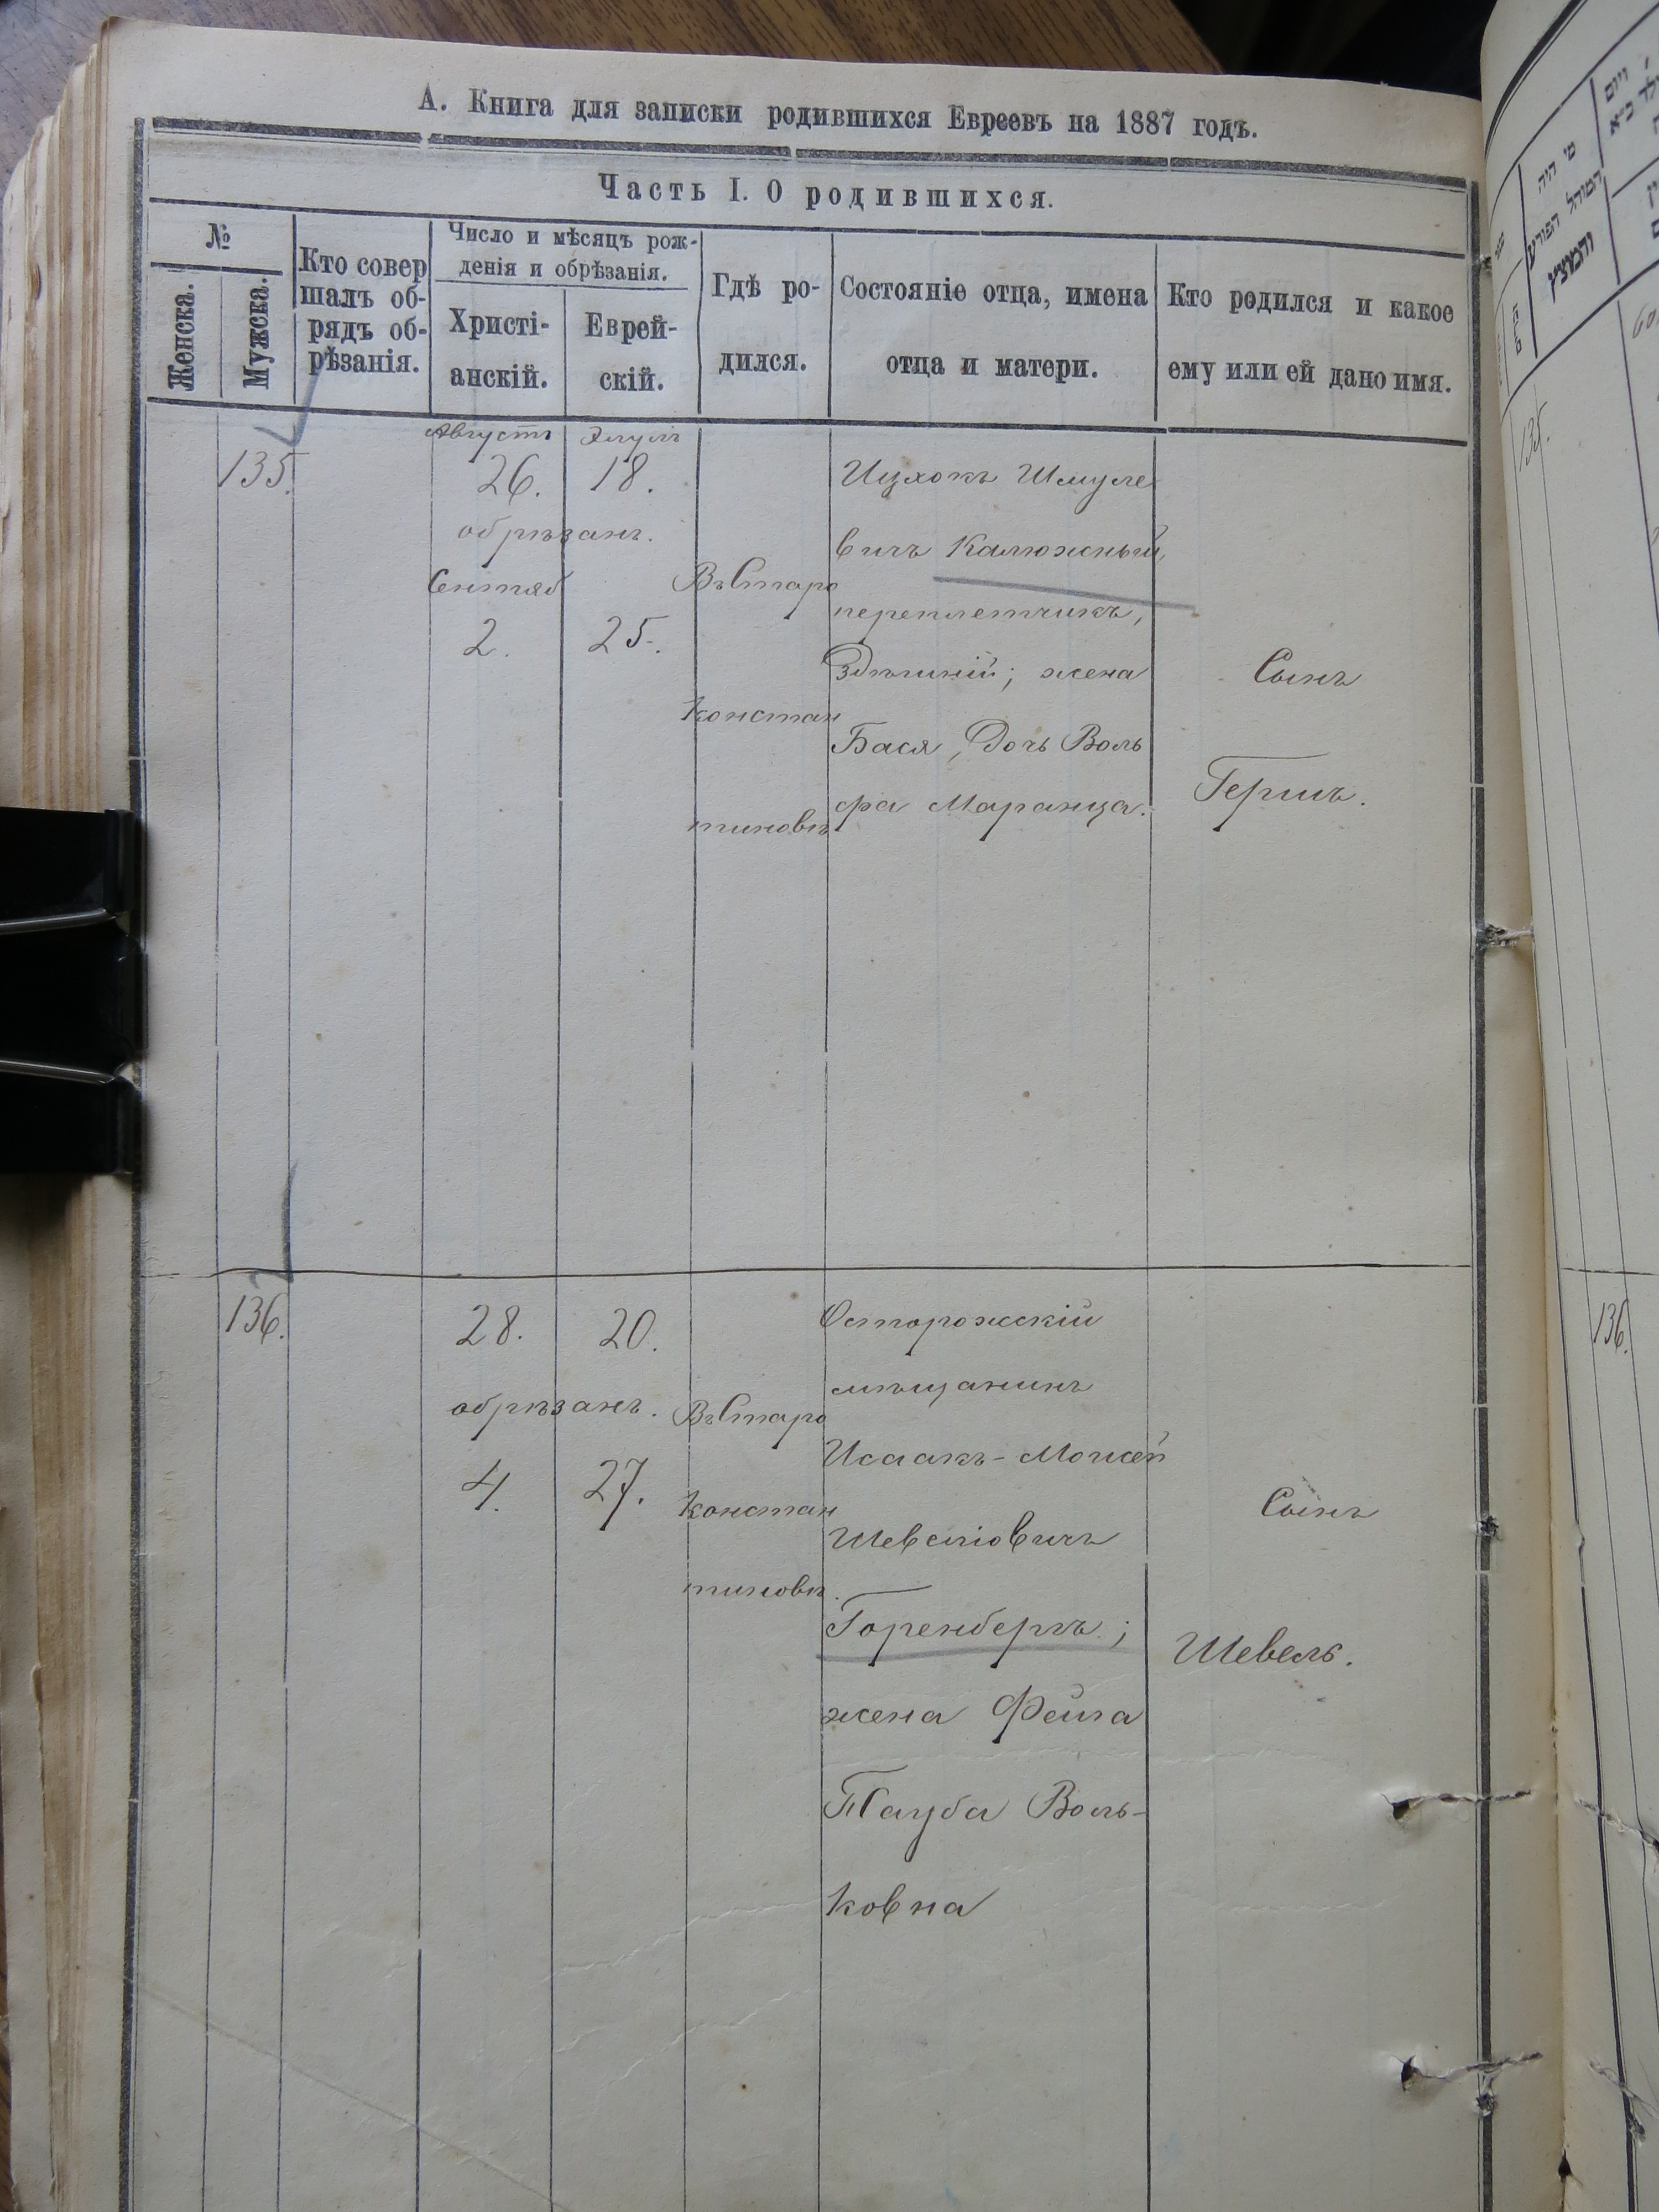 А. Книга для записки родившихся Евреевъ на 1887 годъ.
Часть I. О родившихся.
№
Женска.
Мужска.
Кто совер
шалъ об-
рядъ об-
рѣзанія.
Число и мѣсяцъ рож-
денія и обрѣзанія.
Христі-
анскій.
Еврей-
скій.
Гдѣ ро-
дился.
Состояніе отца, имена
отца и матери.
Кто родился и какое
ему или ей дано имя.
135.
Августъ
26.
Элулъ
18.
обрѣзанъ.
Сентяб
2.
25.
Въ Старо
констан
тиновѣ
Ицхокъ Шмуле
вичъ Калюжный,
переплетчикъ,
Здѣшній; жена
Бася, Дочь Воль
фа Маранца.
Сынъ
Гершъ.
136.
28.
20.
обрѣзанъ.
4.
27.
Въ Старо
констан
тиновѣ.
Осторожскій
мѣщанинъ
Исаакъ-Мошей
Шевеліовичъ
Горенбергъ;
жена Фейга
Тауба Воль-
ковна
Сынъ
Шевель.
מי היה
המוהל הפורע
והמוצץ
135.
136.